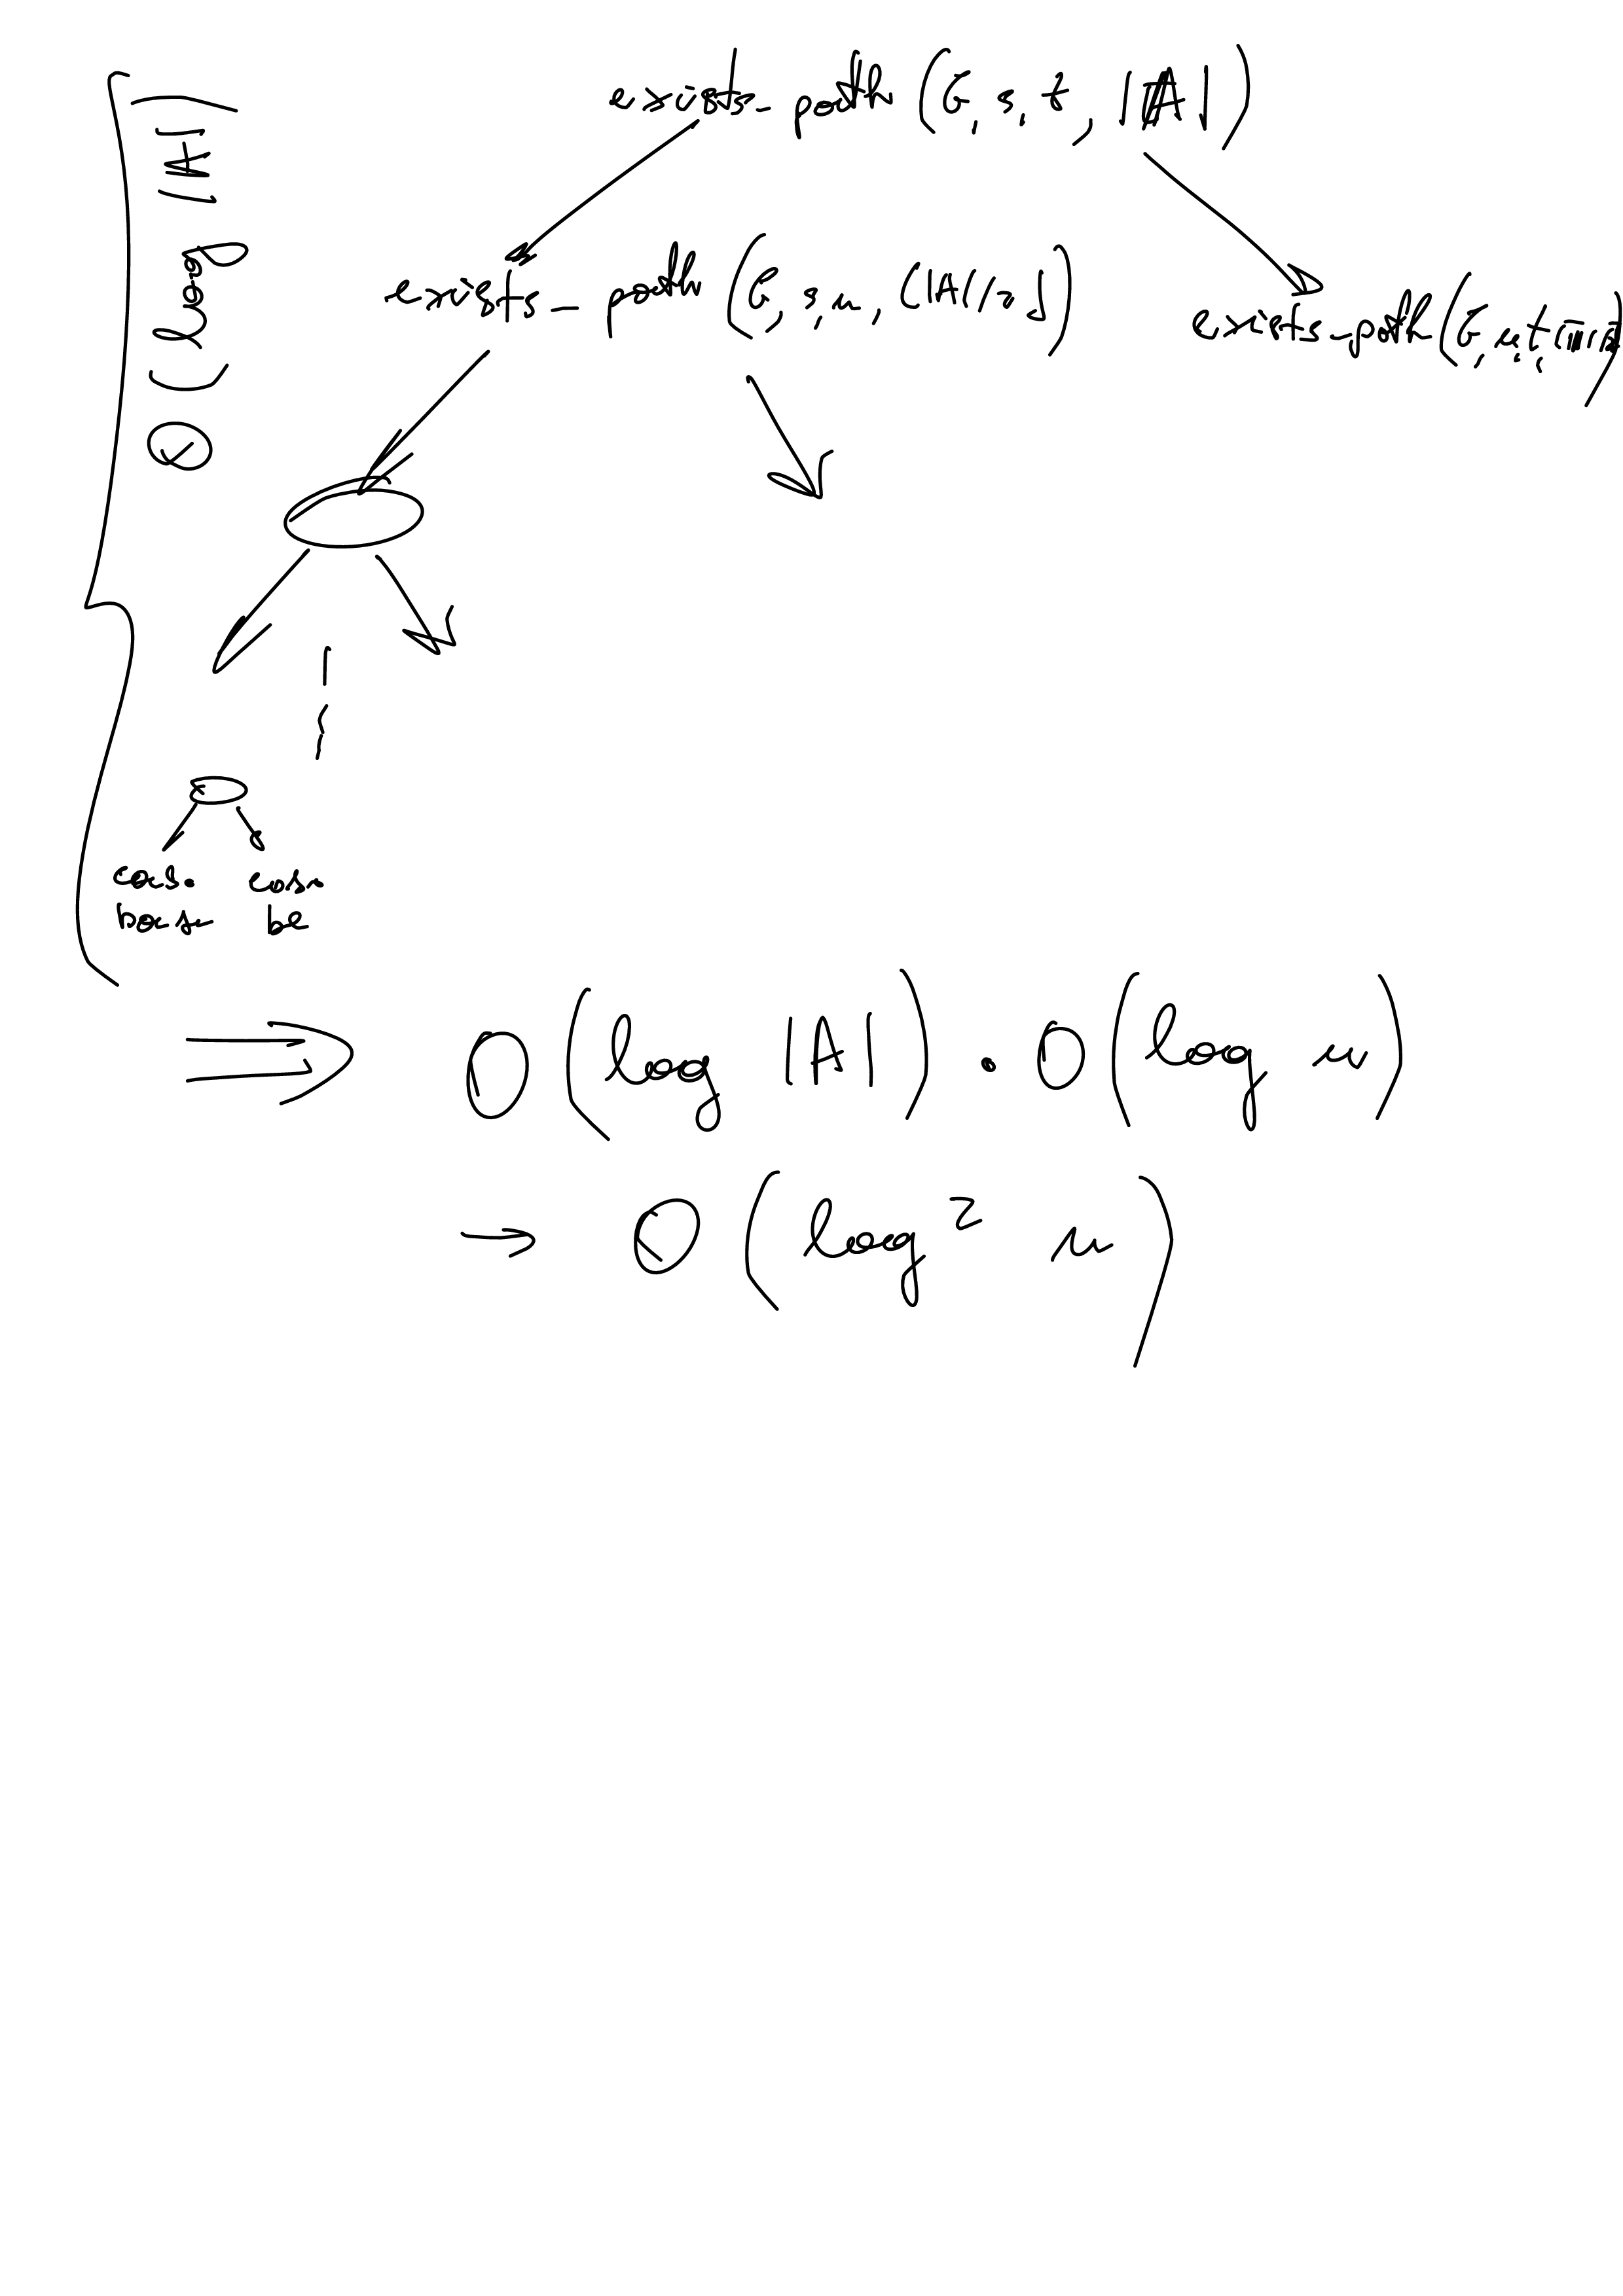 exists_path (G, s, t, |A|)
exists_path (G, s, u, ⌊|A|/2⌋)
exists_path (G, u, t,
O(log |A|)
caso caso
base ba
⇒ O(log |A|) · O(log n)
→ O(log² n)